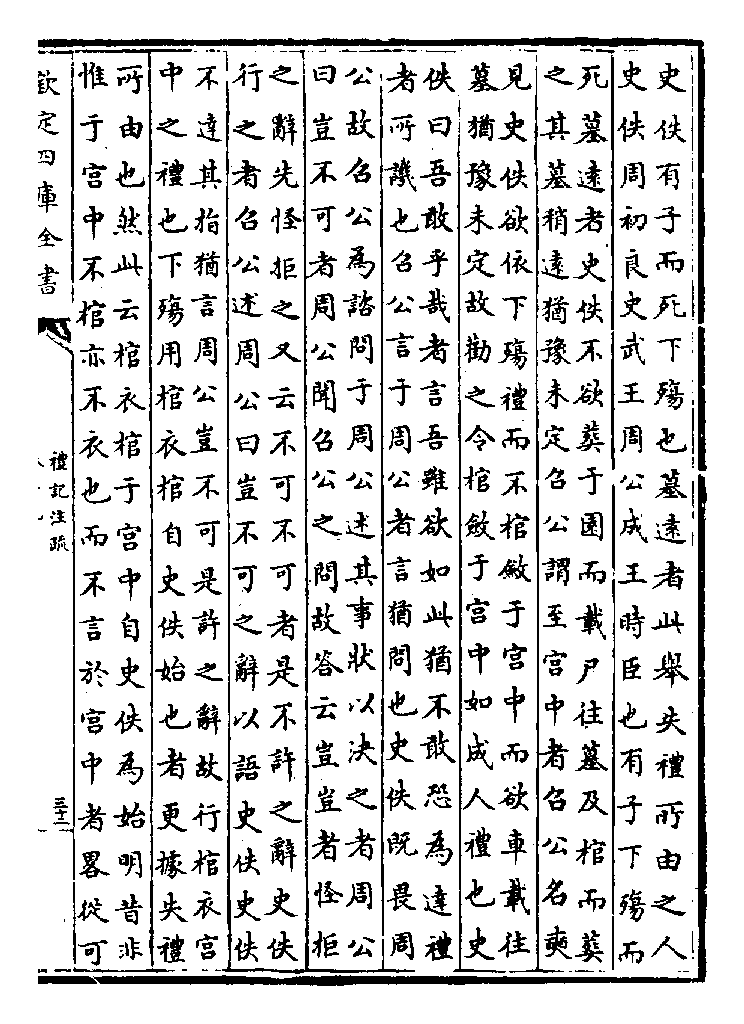 史佚有子而死下殤也墓遠者此舉失禮所由之人
史佚周初良史武王周公成王時臣也有子下殤而
死墓遠者史佚不欲葬于園而載尸往墓及棺而葬
之其墓稍遠猶豫未定召公謂至宮中者召公名奭
見史佚欲依下殤禮而不棺斂于宮中而欲車載往
墓猶豫未定故勸之令棺斂于宮中如成人禮也史
佚曰吾敢乎哉者言吾雖欲如此猶不敢恐為達禮
者所譏也召公言于周公者言猶問也史佚既畏周
公故召公為諮問于周公述其事狀以決之者周公
曰豈不可者周公聞召公之問故答云豈豈者怪拒
之辭先怪拒之又云不可不可者是不許之辭史佚
行之者召公述周公曰豈不可之辭以語史佚史佚
不達其指猶言周公豈不可是許之辭故行棺衣宮
中之禮也下殤用棺衣棺自史佚始也者更據失禮
所由也然此云棺衣棺于宮中自史佚為始明昔非
惟于宮中不棺亦不衣也而不言於宮中者畧從可
欽定四庫全書
禮記注疏
三十二